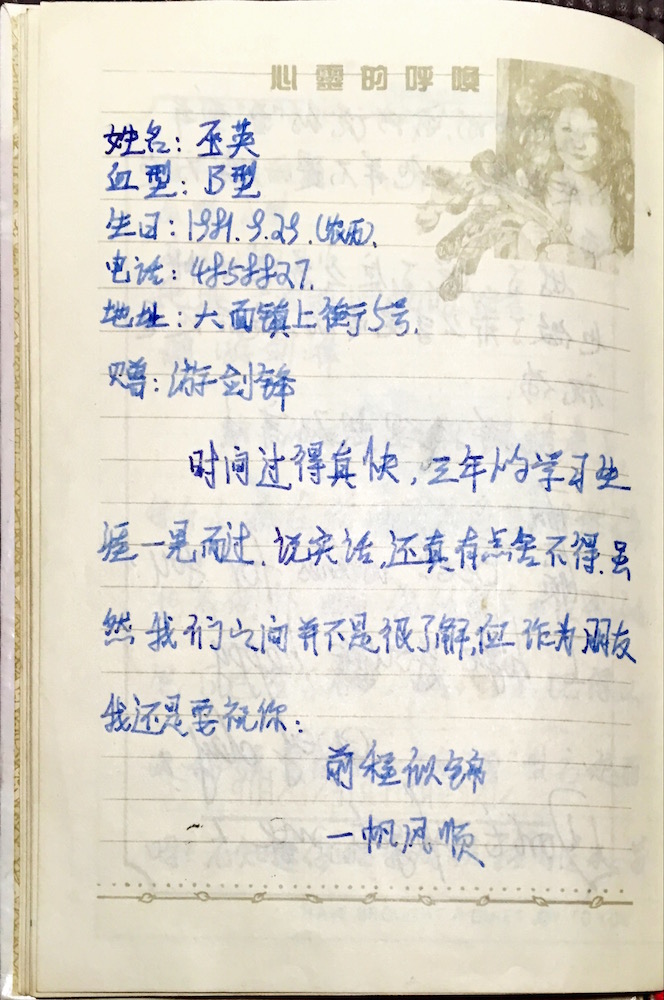 心灵的呼唤
姓名：巫英
血型：B型
生日：1981.9.29.(农历).
电话：4858827.
地址：大面镇上街5号.
赠：游剑锋
时间过得真快，三年的学习生
涯一晃而过.说实话,还真有点舍不得.虽
然我们之间并不是很了解,但作为朋友
我还是要祝你：
前程似锦
一帆风顺